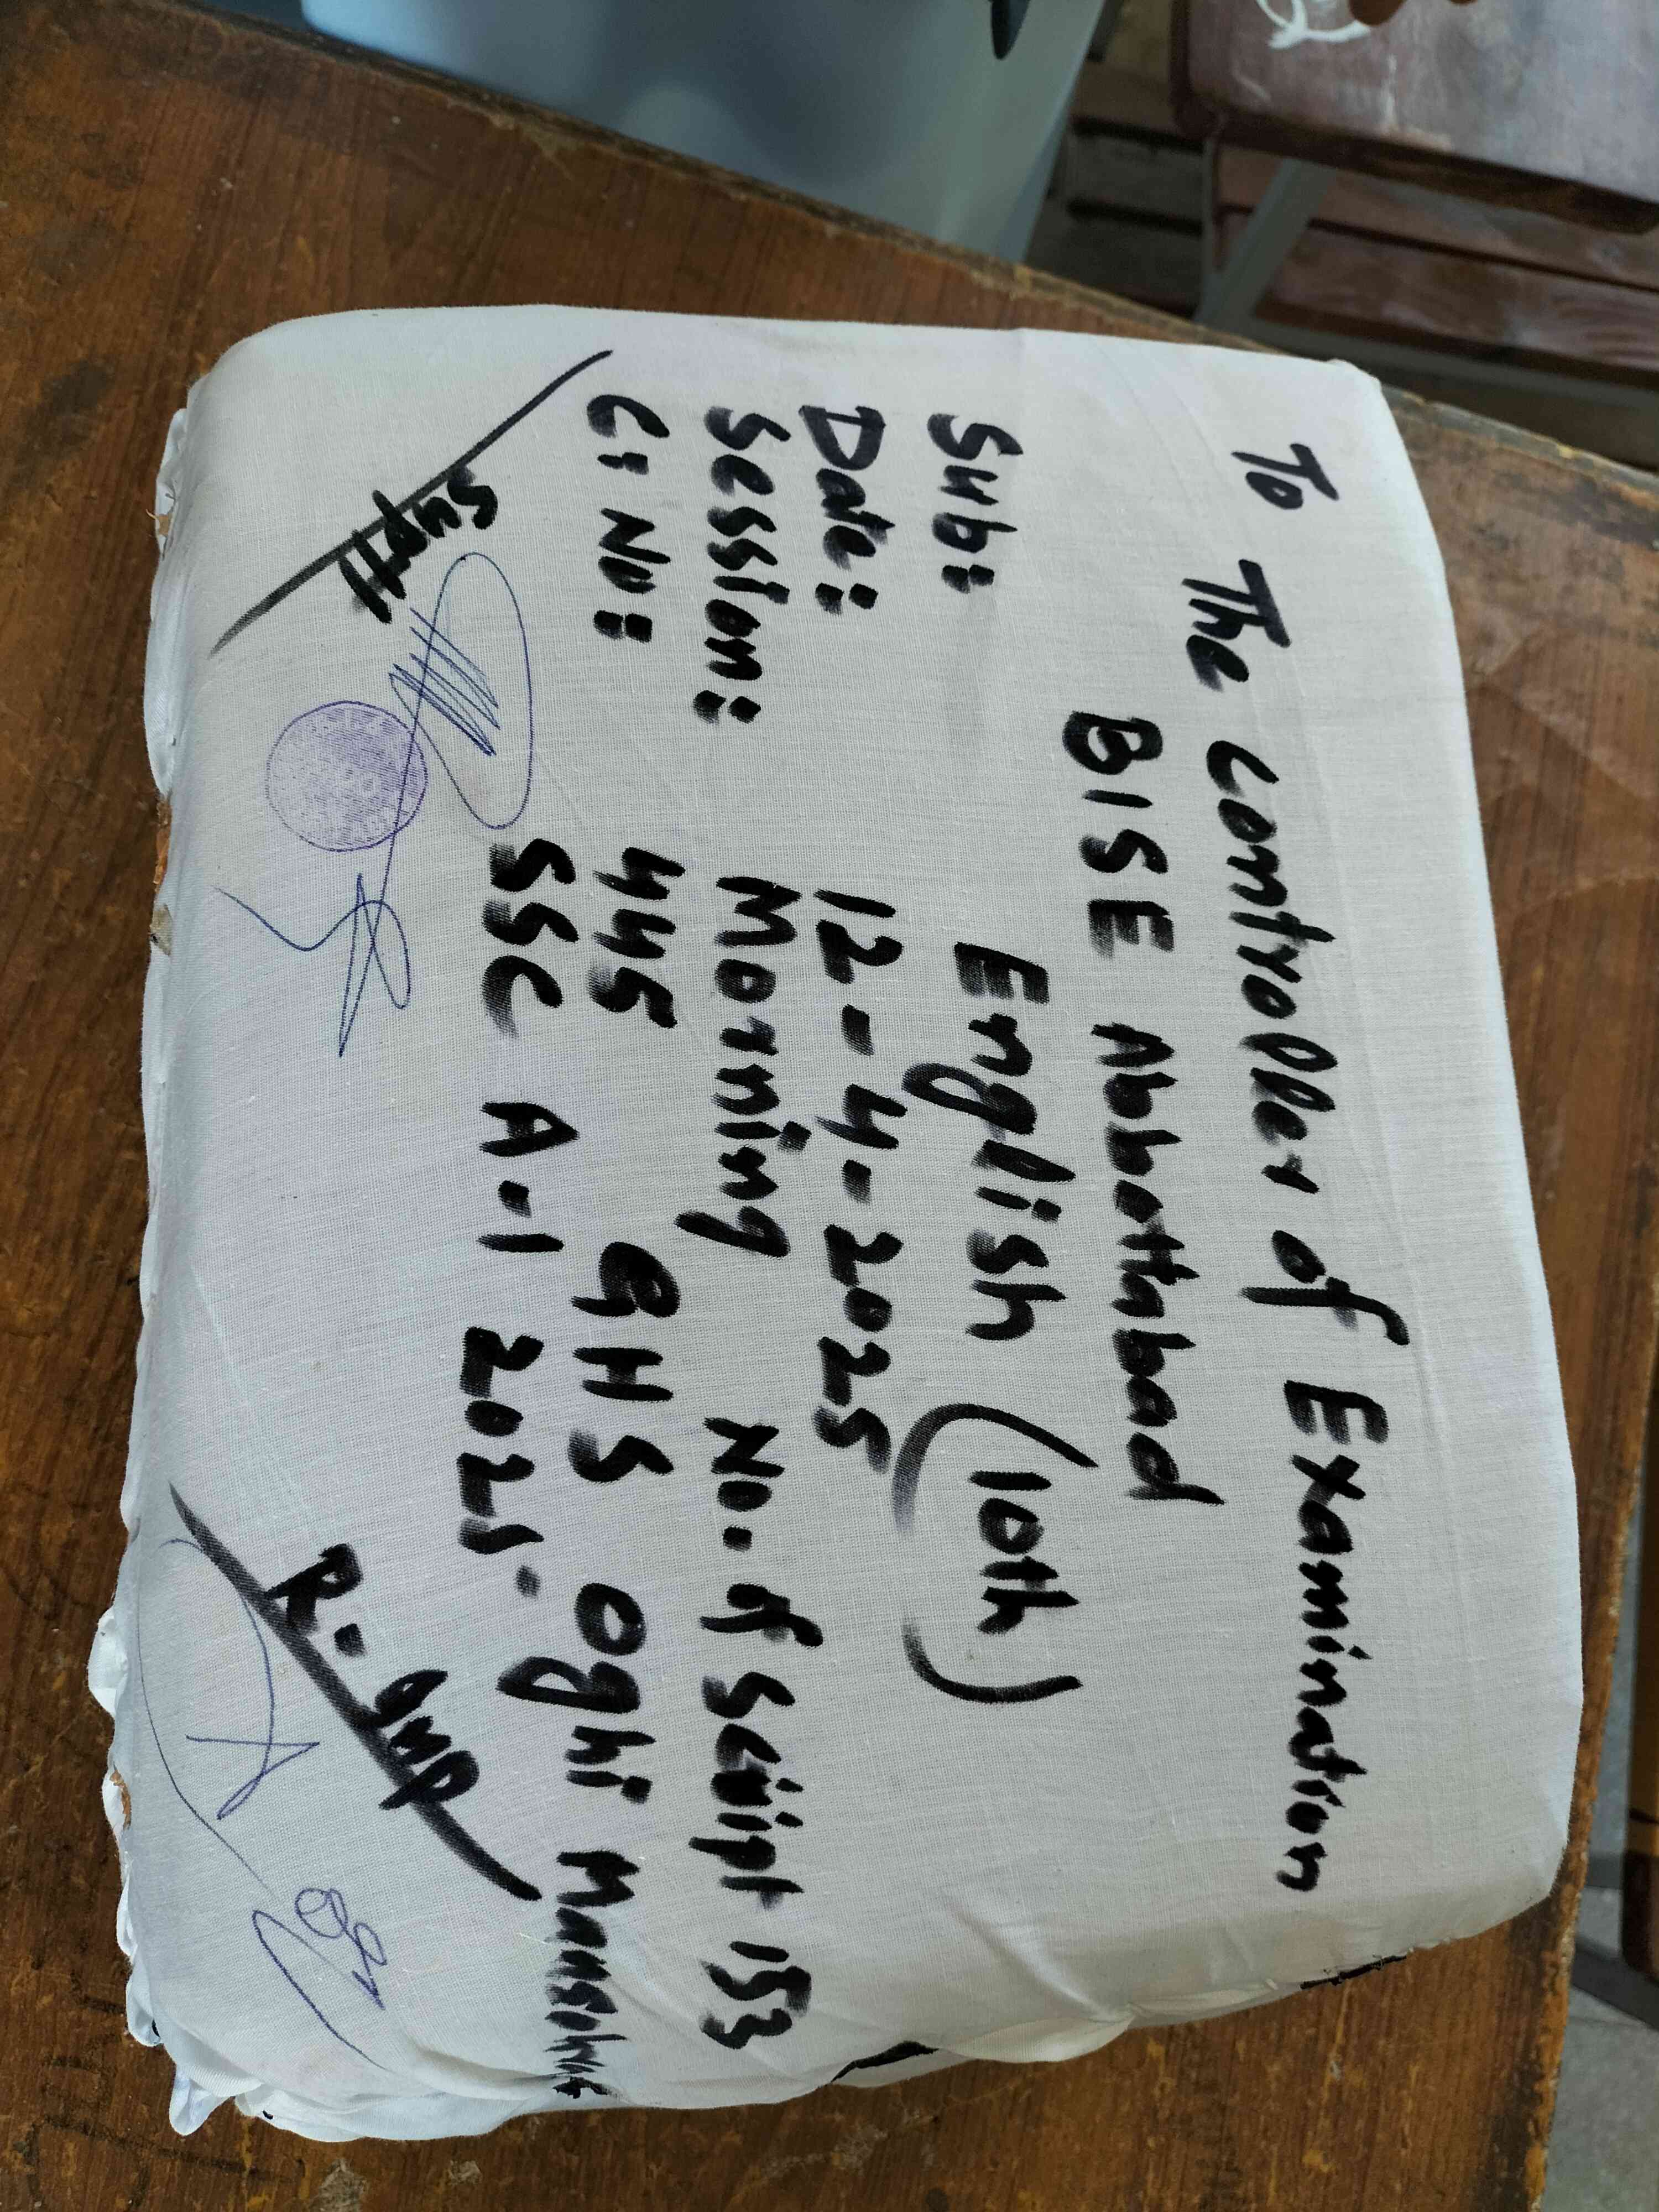 To The Controller of Examination
BISE Abbottabad
Sub: English (10th)
Date: 12-4-2025
Session: Morning No. of Script 153
Cr No: 445 GHS Oghi Mansehra
SSC A-1 2025.
Suptt R-Sup